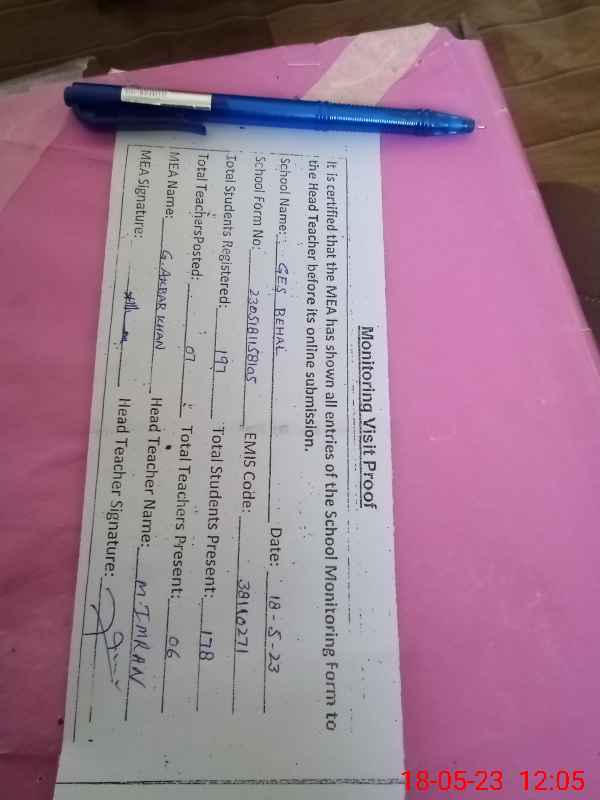 Monitoring Visit Proof
It is certified that the MEA has shown all entries of the School Monitoring Form to
the Head Teacher before its online submission.
School Name: GES BEHAL Date: 18-5-23
School Form No: 2305181158105 EMIS Code: 38110271
Total Students Registered: 197 Total Students Present: 178
Total TeachersPosted: 07 Total Teachers Present: 06
MEA Name: G. AKBAR KHAN Head Teacher Name: M IMRAN
MEA Signature: Head Teacher Signature:
18-05-23 12:05